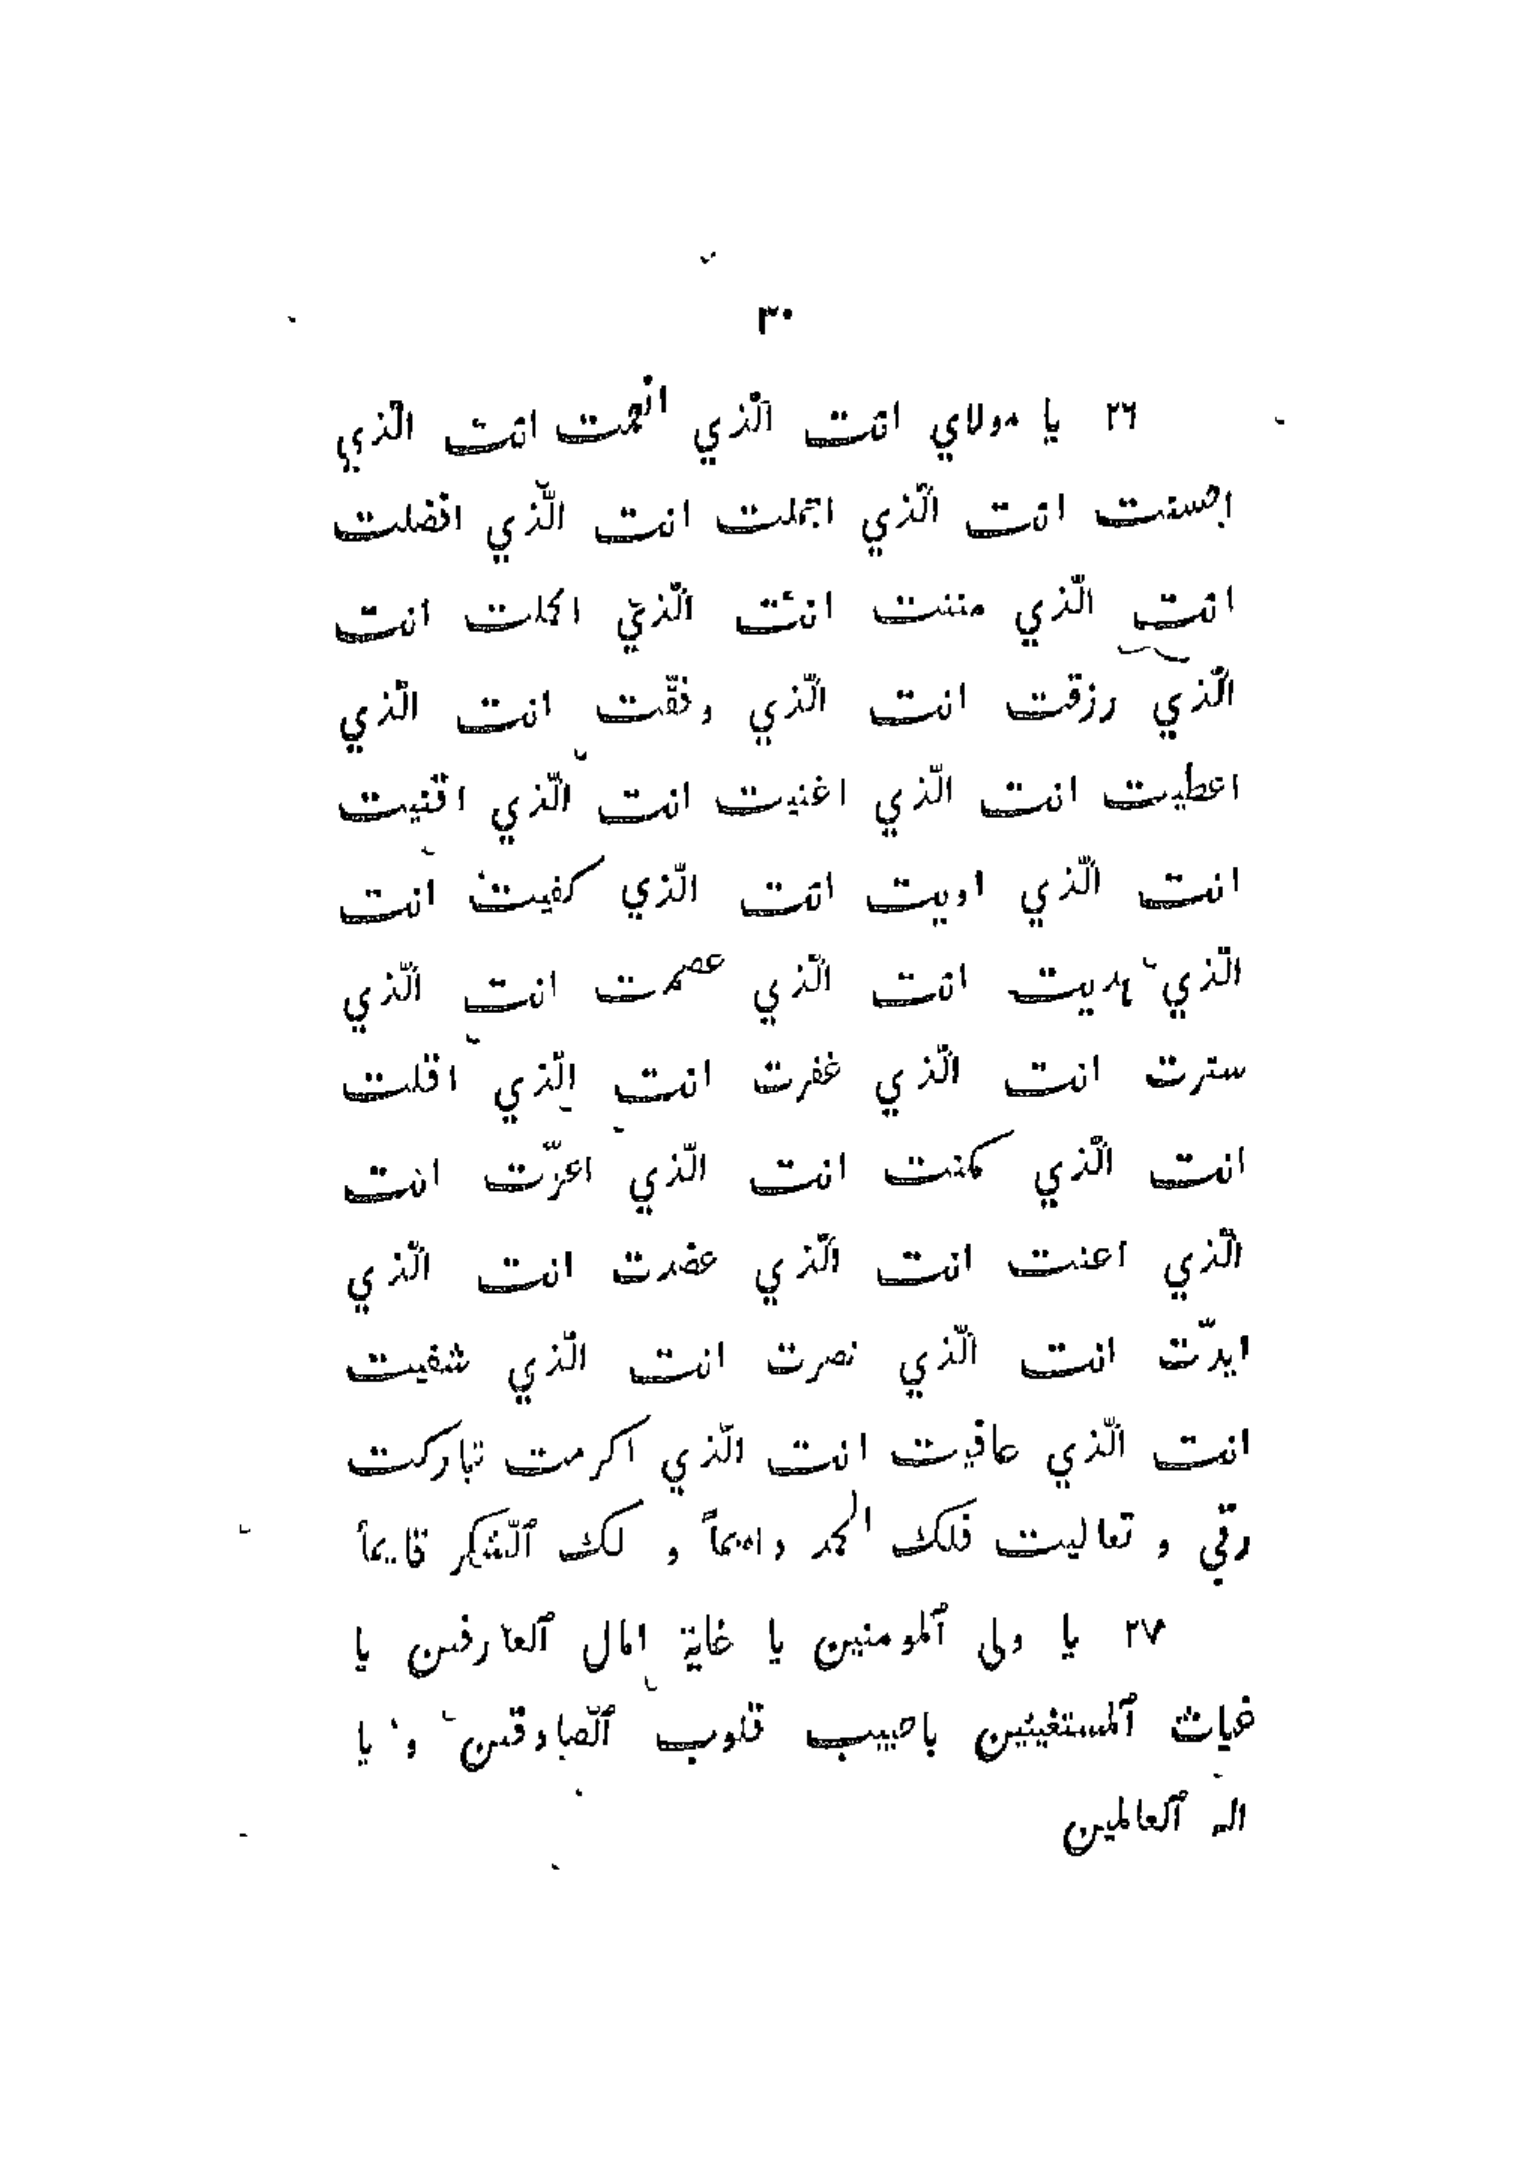 ٣٠
٢٦ يا مولاي انت الّذي انعمت انت الّذي
احسنت انت الّذي اجملت انت الّذي افضلت
انت الّذي مننت انت الّذي اكملت انت
الّذي رزقت انت الّذي وفّقت انت الّذي
اعطيت انت الّذي اغنيت انت الّذي اقنيت
انت الّذي اويت انت الّذي كفيت انت
الّذي هديت انت الّذي عصمت انت الّذي
سترت انت الّذي غفرت انت الّذي اقلت
انت الّذي مكنت انت الّذي اعزّت انت
الّذي اعنت انت الّذي عضدت انت الّذي
ايدّت انت الّذي نصرت انت الّذي شفيت
انت الّذي عافيت انت الّذي اكرمت تباركت
ربّي و تعاليت فلك الحمد دايماً و لك ٱلشّكر قايماً
٢٧ يا ولى ٱلمومنين يا غاية امال ٱلعارفين يا
غياث ٱلمستغيثين يا حبيب قلوب ٱلصّادقين و يا
اله ٱلعالمين